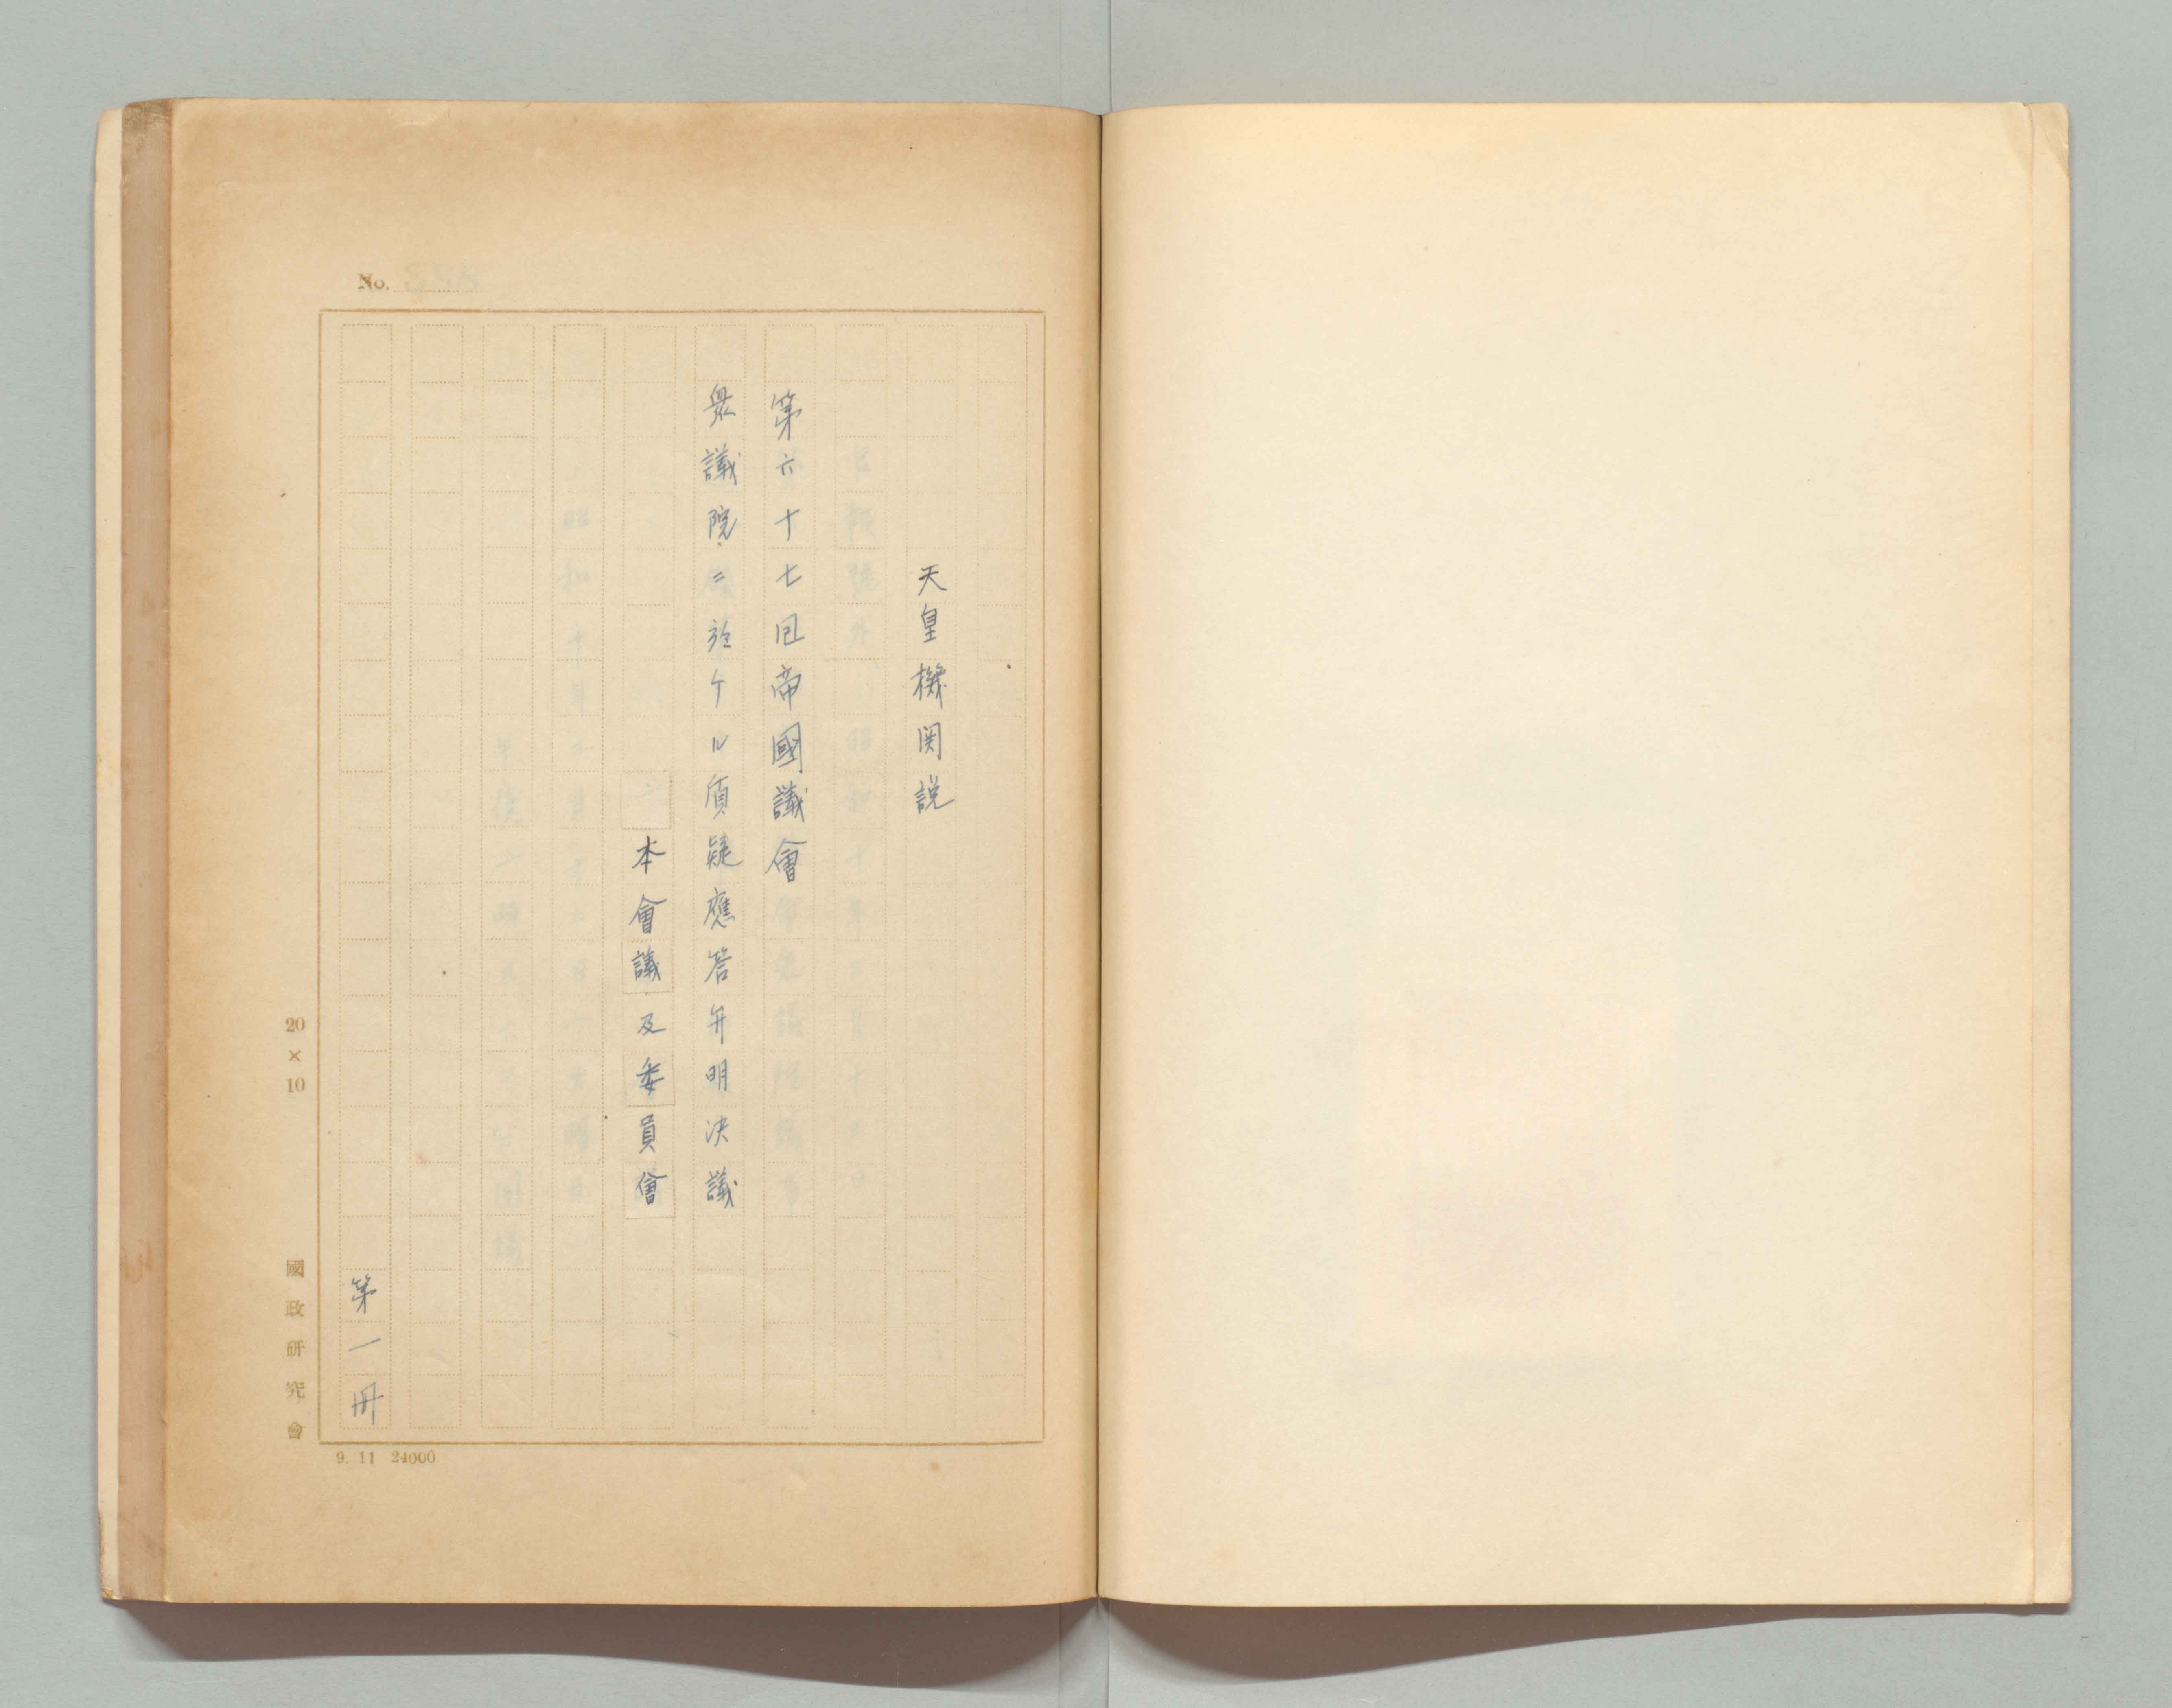 天皇機関説
第六十七回帝國議會
衆議院ニ於ケル質疑應答弁明決議
本會議及委員會
第一冊
No.
20×10
國政研究會
9. 11 24000